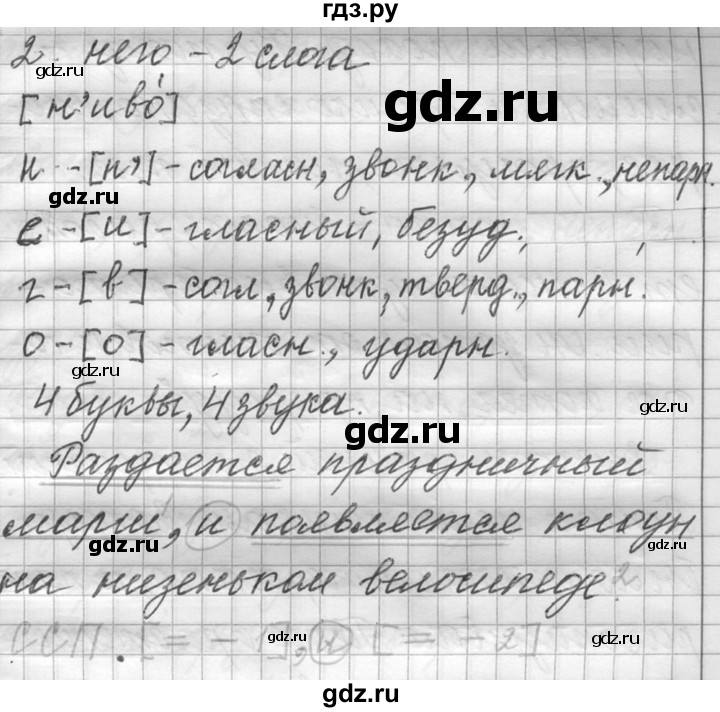 гдз.ру
2 него - 2 слога
[н'иво́]
gdz.ru
н - [н'] - согласн, звонк., мягк., непарн.
gdz.ru
е - [и] - гласный, безуд.,
gdz.ru
г - [в] - согл, звонк, тверд., парн.
о - [о] - гласн., ударн.
gdz.ru
4 буквы, 4 звука.
gdz.ru
gdz.ru
Раздается праздничный
марш, и появляется клоун
gdz.ru
gdz.ru
на низеньком велосипеде
ССП. [= - 1], и [= - 2]
gdz.ru
gdz.ru
gdz.ru